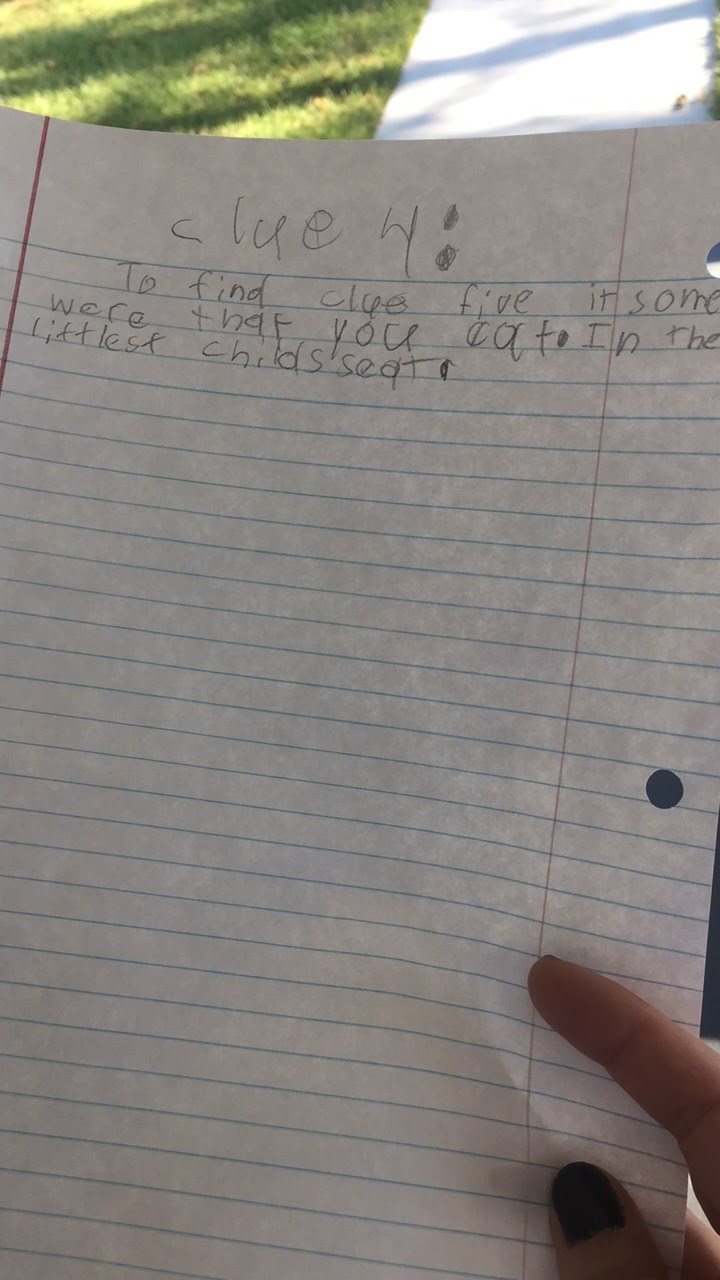 clue 4:
To find clue five it some
were that you eat. In the
littlest childs seat.